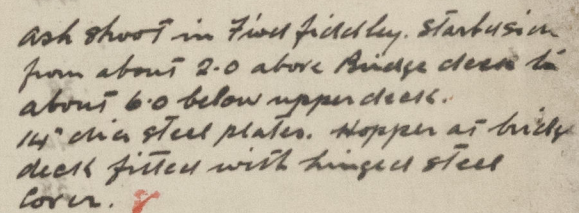 ash shoot in Fwd fiddley. Starbd side
from about 2.0 above Bridge deck to
about 6.0 below upper deck.
14" dia steel plates. Hopper at bridge
deck fitted with hinged steel
cover.